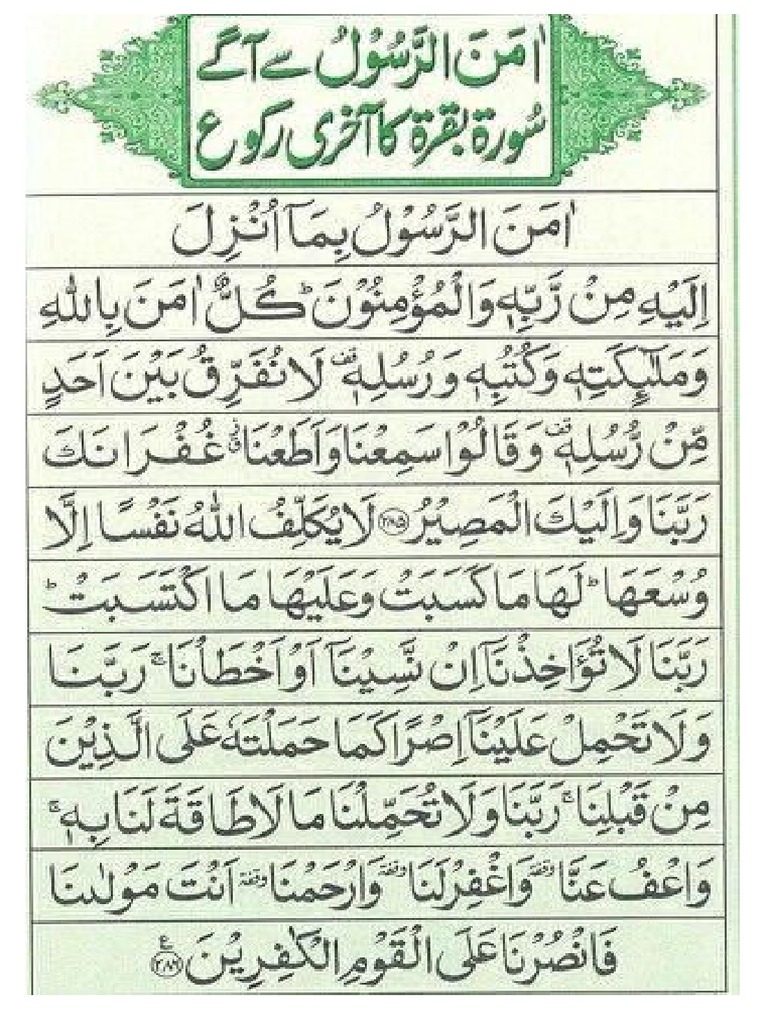 اٰمَنَ الرَّسُوْلُ سے آگے
سُورۃ بقرۃ کا آخری رکوع
اٰمَنَ الرَّسُوْلُ بِمَاۤ اُنْزِلَ
اِلَیْهِ مِنْ رَّبِّهٖ وَالْمُؤْمِنُوْنَ ؕ كُلٌّ اٰمَنَ بِاللّٰهِ
وَمَلٰٓئِكَتِهٖ وَكُتُبِهٖ وَرُسُلِهٖ قف لَا نُفَرِّقُ بَیْنَ اَحَدٍ
مِّنْ رُّسُلِهٖ قف وَقَالُوْا سَمِعْنَا وَاَطَعْنَا ق غُفْرَانَكَ
رَبَّنَا وَاِلَیْكَ الْمَصِیْرُ ﴿۲۸۵﴾ لَا یُكَلِّفُ اللّٰهُ نَفْسًا اِلَّا
وُسْعَهَا ؕ لَهَا مَا كَسَبَتْ وَعَلَیْهَا مَا اكْتَسَبَتْ ؕ
رَبَّنَا لَا تُؤَاخِذْنَاۤ اِنْ نَّسِیْنَاۤ اَوْ اَخْطَاْنَا ۚ رَبَّنَا
وَلَا تَحْمِلْ عَلَیْنَاۤ اِصْرًا كَمَا حَمَلْتَهٗ عَلَی الَّذِیْنَ
مِنْ قَبْلِنَا ۚ رَبَّنَا وَلَا تُحَمِّلْنَا مَا لَا طَاقَةَ لَنَا بِهٖ ۚ
وَاعْفُ عَنَّا وقفة وَاغْفِرْ لَنَا وقفة وَارْحَمْنَا وقفة اَنْتَ مَوْلٰىنَا
فَانْصُرْنَا عَلَی الْقَوْمِ الْكٰفِرِیْنَ ﴿۲۸۶﴾ ع